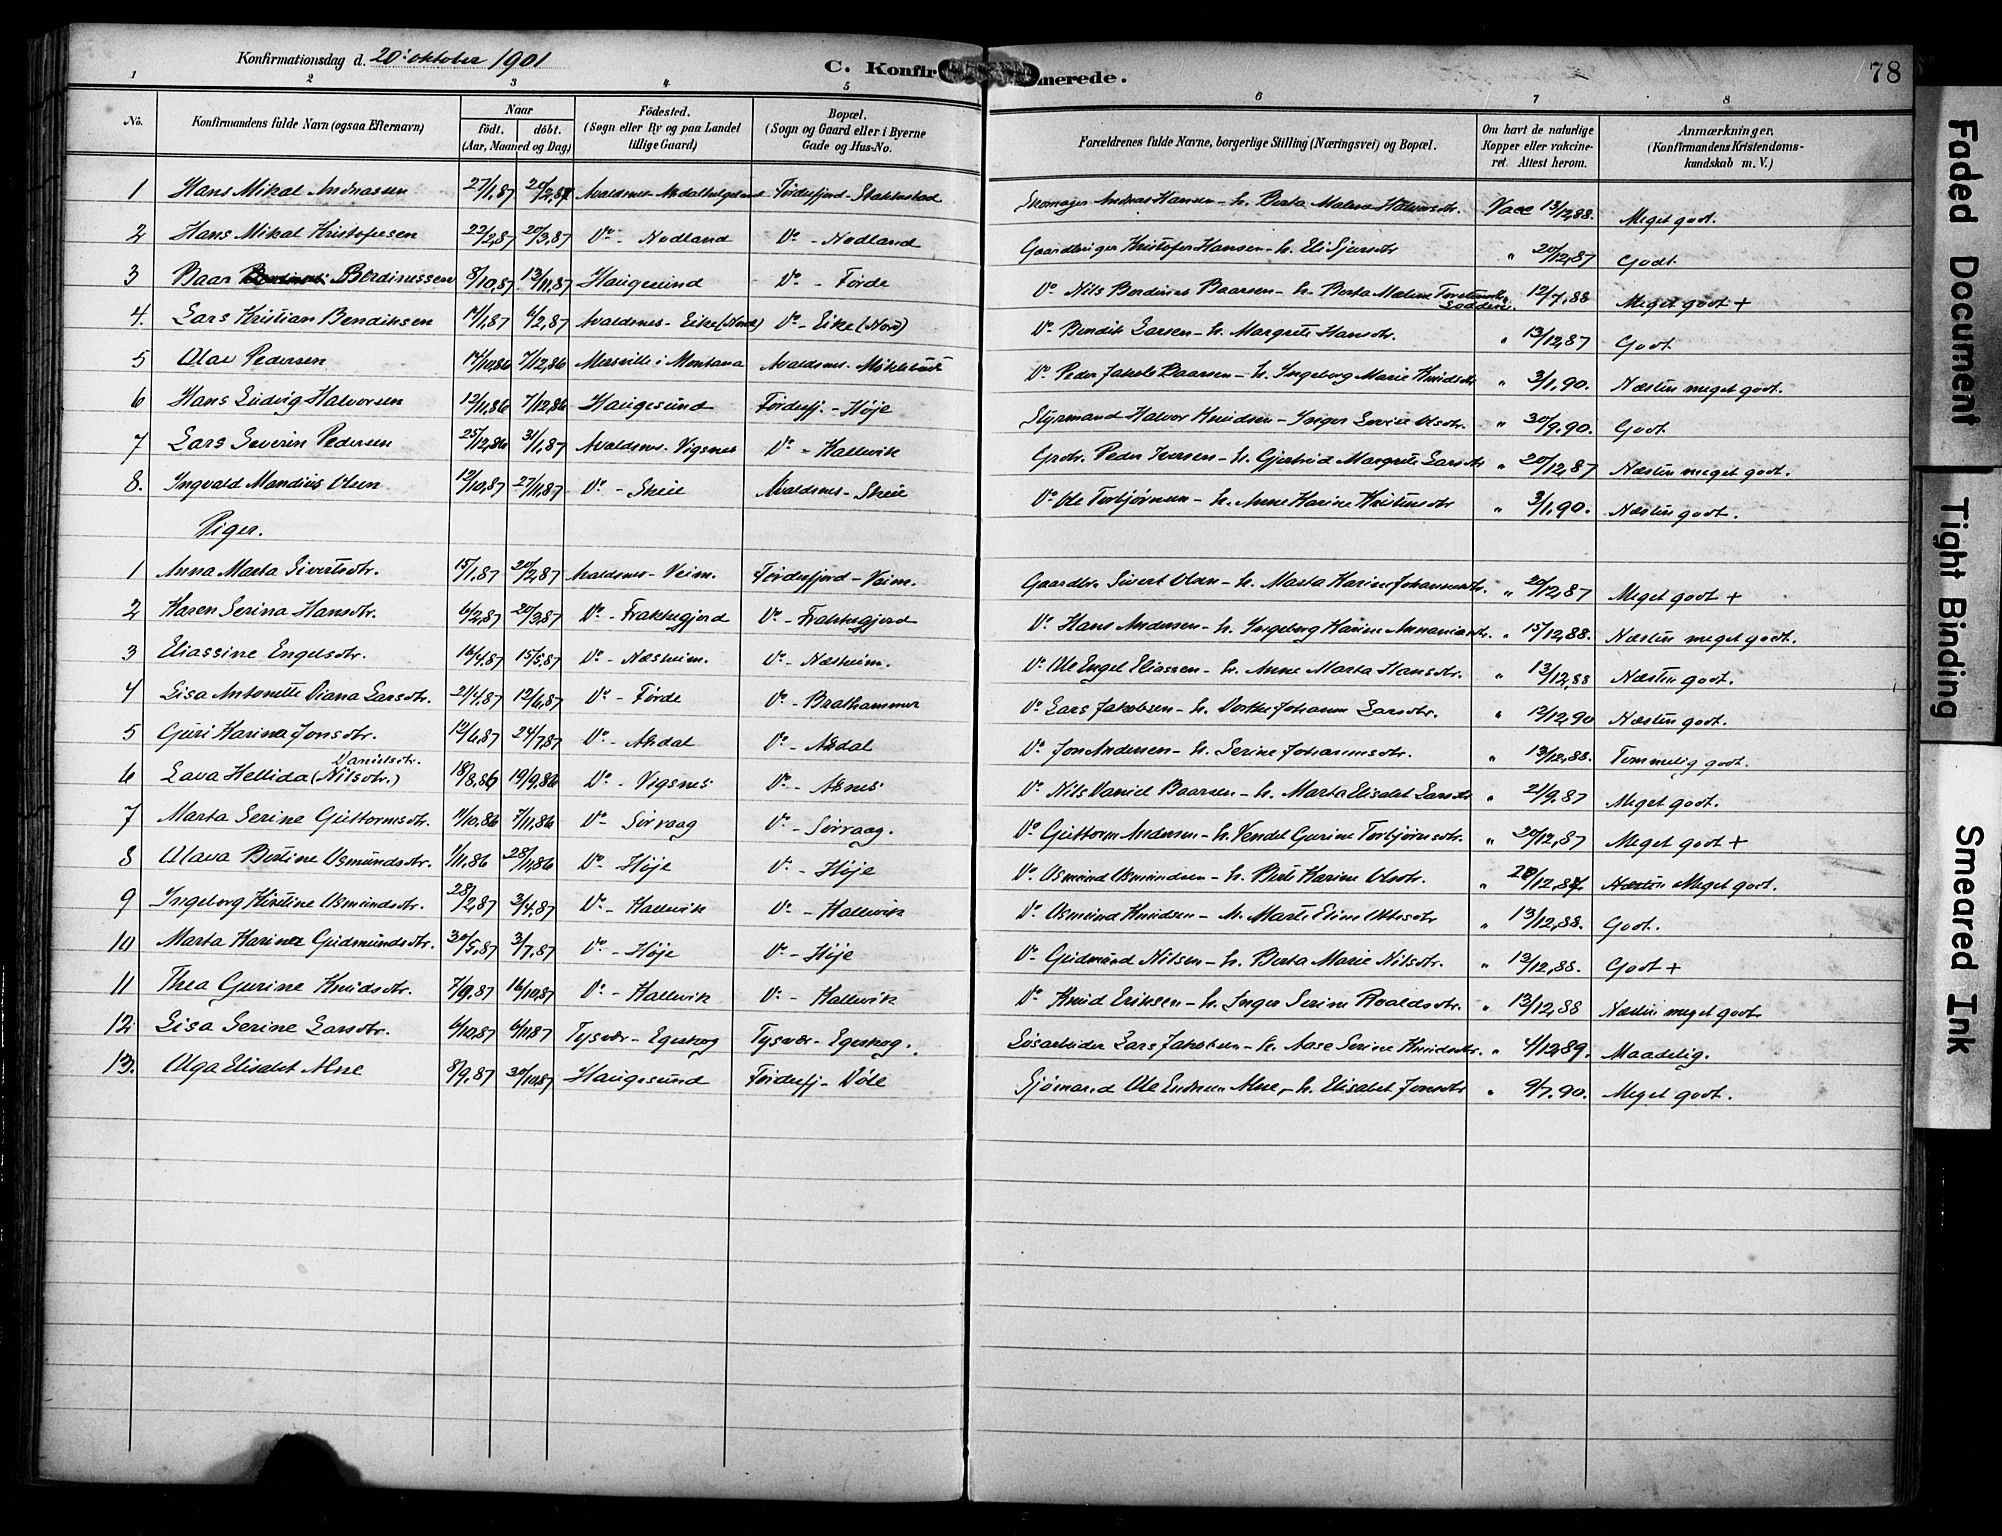 Konfirmationsdag d. 20' oktober 1901
C. Konfirmerede.
78
1 2 3 4 5 6 7 8
No. Konfirmandens fulde Navn (ogsaa Efternavn) Naar födt. döbt. (Aar, Maaned og Dag) Födested. (Sogn eller By og paa Landet tillige Gaard) Bopæl. (Sogn og Gaard eller i Byerne Gade og Hus-No. Forældrenes fulde Navne, borgerlige Stilling (Næringsvei) og Bopæl. Om havt de naturlige Kopper eller vakcineret. Attest herom. Anmærkninger. (Konfirmandens Kristendomskundskab m. V.)
1 Hans Mikal Andreassen 27/1,87 20/2,87 Avaldsnes - Fördesfjord - Stakkestad Skomager Andreas Hansen - h. Berta Malene Halvorsdtr. Vacc 13/12,88. Meget godt.
2 Hans Mikal Kristofersen 22/2,87 20/3,87 Do - Nodland Do - Nodland Gaardbruger Kristofer Hansen - h. Eli Sjursdtr " 20/12,87 Godt.
3 Baar Berdinussen 8/10,87 13/11,87 Haugesund Do - Førde Do Nils Berdines Baarsen - h. Berta Malene Torstensdtr. Lodden. 12/7,88 Meget godt +
4. Lars Kristian Bendiksen 14/1,87 6/2,87 Avaldsnes - Eike (Nord) Do - Eike (Nord) Do Bendik Larsen - h. Margrete Hansdtr. " 13/12,87 Godt.
5 Olav Pedersen 14/10,86 7/12,86 Mersville i Montana Avaldsnes - Miklebust Do Peder Jakob Baarsen - h. Ingeborg Marie Knudsdtr " 3/1,90. Næsten meget godt.
6 Hans Ludvig Halvorsen 12/11,86 7/12,86 Haugesund Førdesfj. - Høje Styrmand Halvor Knudsen - Inger Sevine Olsdtr. " 30/9,90. Godt.
7 Lars Severin Pedersen 25/12,86 31/1,87 Avaldsnes - Vigsnes Do - Hallevik Grdbr. Peder Iversen - h. Gjertrud Margrete Larsdtr " 20/12,87 Næsten meget godt.
8. Ingvald Mandius Olsen 12/10,87 27/11,87 Do - Skeie Avaldsnes - Skeie Do Ole Torbjørnsen - h. Anne Karine Kristensdtr " 3/1,90. Næsten godt.
Piger.
1 Anna Marta Sivertsdtr. 15/1,87 20/2,87 Avaldsnes - Veim. Førdesfjord - Veim. Gaardbr. Sivert Olsen - h. Marta Karine Johannesdtr. " 20/12,87 Meget godt +
2 Karen Serina Hansdtr. 6/2,87 20/3,87 Do - Frakkagjerd Do - Frakkagjerd Do Hans Andersen - h. Ingeborg Karine Annaniasdtr. " 15/12,88. Næsten meget godt.
3 Eliassine Engelsdtr. 16/4,87 15/5,87 Do - Næsheim. Do - Næsheim. Do Ole Engel Eliassen - h. Anne Marta Hansdtr. " 13/12,88 Næsten godt.
4 Lisa Antonette Diana Larsdtr. 21/4,87 12/6,87 Do - Førde Do - Brathammer Do Lars Jakobsen - h. Dorthe Johanne Larsdtr. " 12/12,90 Næsten godt.
5 Guri Karina Jonsdtr. 12/6,87 24/7,87 Do - Aksdal Do - Aksdal Do Jon Andersen - h. Serine Johannesdtr. " 13/12,88. Temmelig godt.
6 Lava Hellida (Nilsdtr.) Danielsdtr. 18/8,86 19/9,86 Do - Vigsnes Do - Aknes Do Nils Daniel Baarsen - h. Marta Elisabet Larsdtr " 21/9,87 Meget godt.
7 Marta Serine Guttormsdtr. 11/10,86 7/11,86 Do - Sørvaag Do - Sørvaag. Do Guttorm Andersen - h. Vendel Gurine Torbjørnsdtr. " 20/12,87 Meget godt +
8 Olava Bertine Osmundsdtr. 1/11,86 28/11,86 Do - Høje Do - Høje Do Osmund Osmundsen - h. Berte Karine Olsdtr. " 20/12,87 Næsten Meget godt.
9 Ingeborg Kristine Osmundsdtr. 28/2,87 3/4,87 Do - Hallevik Do - Hallevik Do Osmund Knudsen - h. Marte Eline Ottesdtr " 13/12,88. Godt.
10 Marta Karine Gudmundsdtr. 30/5,87 3/7,87 Do - Høje Do - Høje Do Gudmund Nilsen - h. Berta Marie Nilsdtr. " 13/12,88. Godt +
11 Thea Gurine Knudsdtr. 7/9,87 16/10,87 Do - Hallevik Do - Hallevik Do Knud Eriksen - h. Inger Serine Roaldsdtr. " 13/12,88 Næsten meget godt
12. Lisa Serine Larsdtr. 6/10,87 6/11,87 Tysvær - Egeskog Tysvær - Egeskog. Løsarbeider Lars Jakobsen - h. Aase Serine Knudsdtr. " 4/12,89. Maadelig.
13. Olga Elisabet Alne 8/9,87 30/10,87 Haugesund Førdesfj - Døle Sjømand Ole Endresen Alne, - h. Elisabet Jonsdtr " 9/7,90. Meget godt.
Faded Document
Tight Binding
Smeared Ink